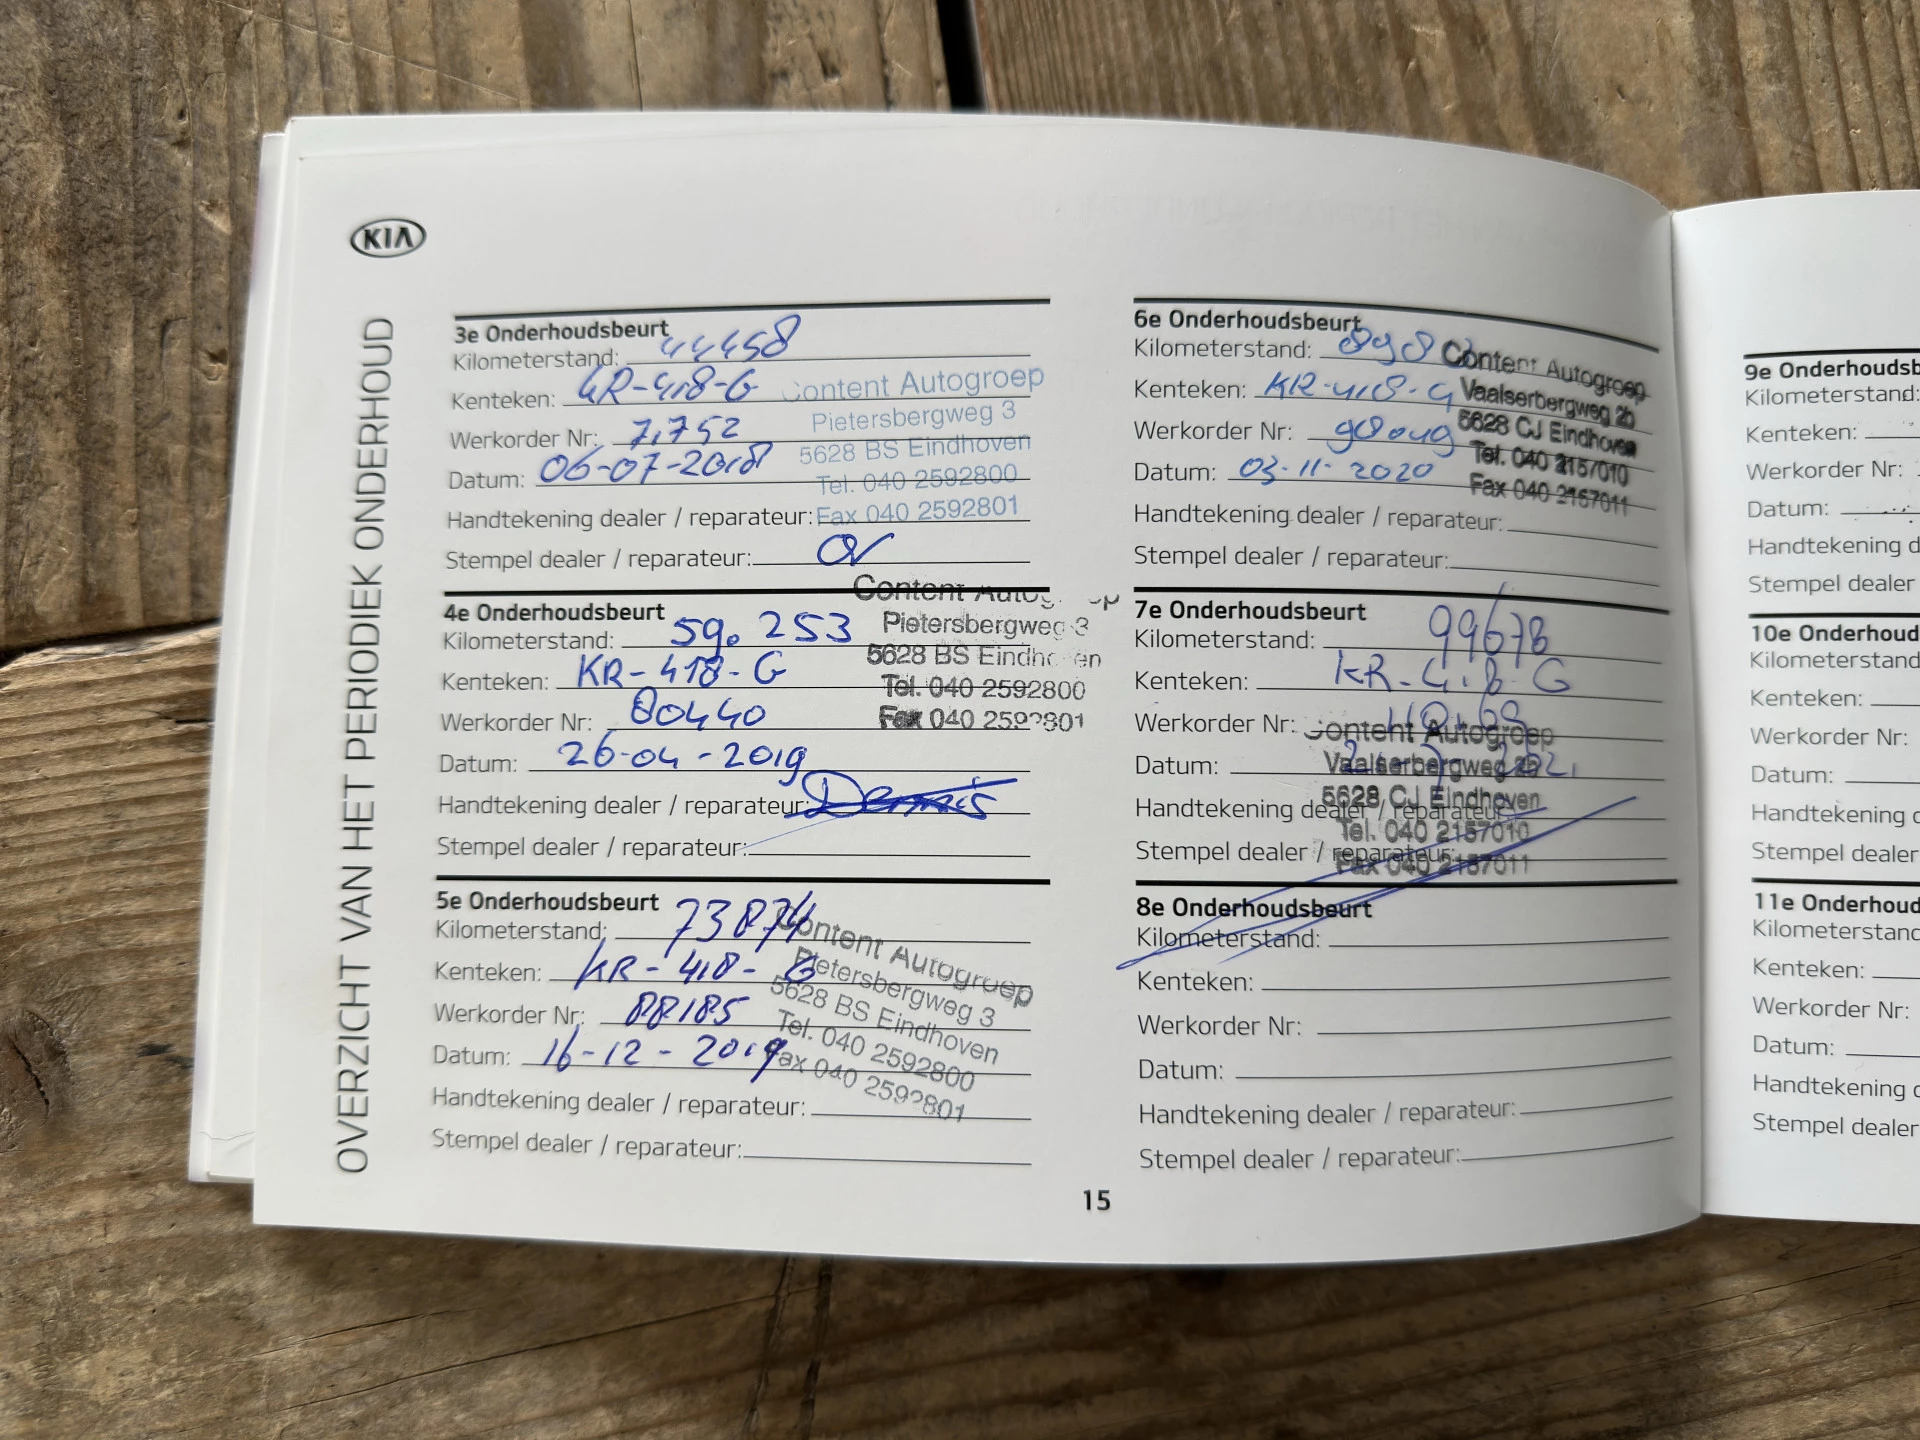 KIA
OVERZICHT VAN HET PERIODIEK ONDERHOUD
3e Onderhoudsbeurt
Kilometerstand: 44458
Kenteken: KR-418-G
Werkorder Nr: 71752
Datum: 06-07-2018
Handtekening dealer / reparateur:
Stempel dealer / reparateur:
Content Autogroep
Pietersbergweg 3
5628 BS Eindhoven
Tel. 040 2592800
Fax 040 2592801
4e Onderhoudsbeurt
Kilometerstand: 59.253
Kenteken: KR-418-G
Werkorder Nr: 80440
Datum: 26-04-2019
Handtekening dealer / reparateur: Dennis
Stempel dealer / reparateur:
Content Autogroep
Pietersbergweg 3
5628 BS Eindhoven
Tel. 040 2592800
Fax 040 2592801
5e Onderhoudsbeurt
Kilometerstand: 73874
Kenteken: KR-418-G
Werkorder Nr: 88185
Datum: 16-12-2019
Handtekening dealer / reparateur:
Stempel dealer / reparateur:
Content Autogroep
Pietersbergweg 3
5628 BS Eindhoven
Tel. 040 2592800
Fax 040 2592801
6e Onderhoudsbeurt
Kilometerstand:
Kenteken: KR-418-G
Werkorder Nr: 98049
Datum: 03-11-2020
Handtekening dealer / reparateur:
Stempel dealer / reparateur:
Content Autogroep
Vaalserbergweg 2b
5628 CJ Eindhoven
Tel. 040 2157010
Fax 040 2157011
7e Onderhoudsbeurt
Kilometerstand: 99678
Kenteken: KR-418-G
Werkorder Nr:
Datum:
Handtekening dealer / reparateur:
Stempel dealer / reparateur:
Content Autogroep
Vaalserbergweg 2b
5628 CJ Eindhoven
Tel. 040 2157010
Fax 040 2157011
8e Onderhoudsbeurt
Kilometerstand:
Kenteken:
Werkorder Nr:
Datum:
Handtekening dealer / reparateur:
Stempel dealer / reparateur:
15
9e Onderhoudsb
Kilometerstand:
Kenteken:
Werkorder Nr:
Datum:
Handtekening d
Stempel dealer
10e Onderhoud
Kilometerstand
Kenteken:
Werkorder Nr:
Datum:
Handtekening d
Stempel dealer
11e Onderhoud
Kilometerstand
Kenteken:
Werkorder Nr:
Datum:
Handtekening d
Stempel dealer